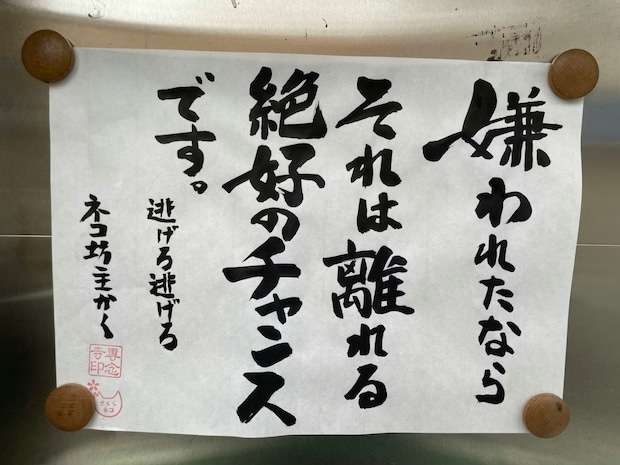 嫌われたなら
それは離れる
絶好のチャンス
です。
逃げろ逃げろ
ネコ坊主かく
専念寺印
さくらネコ